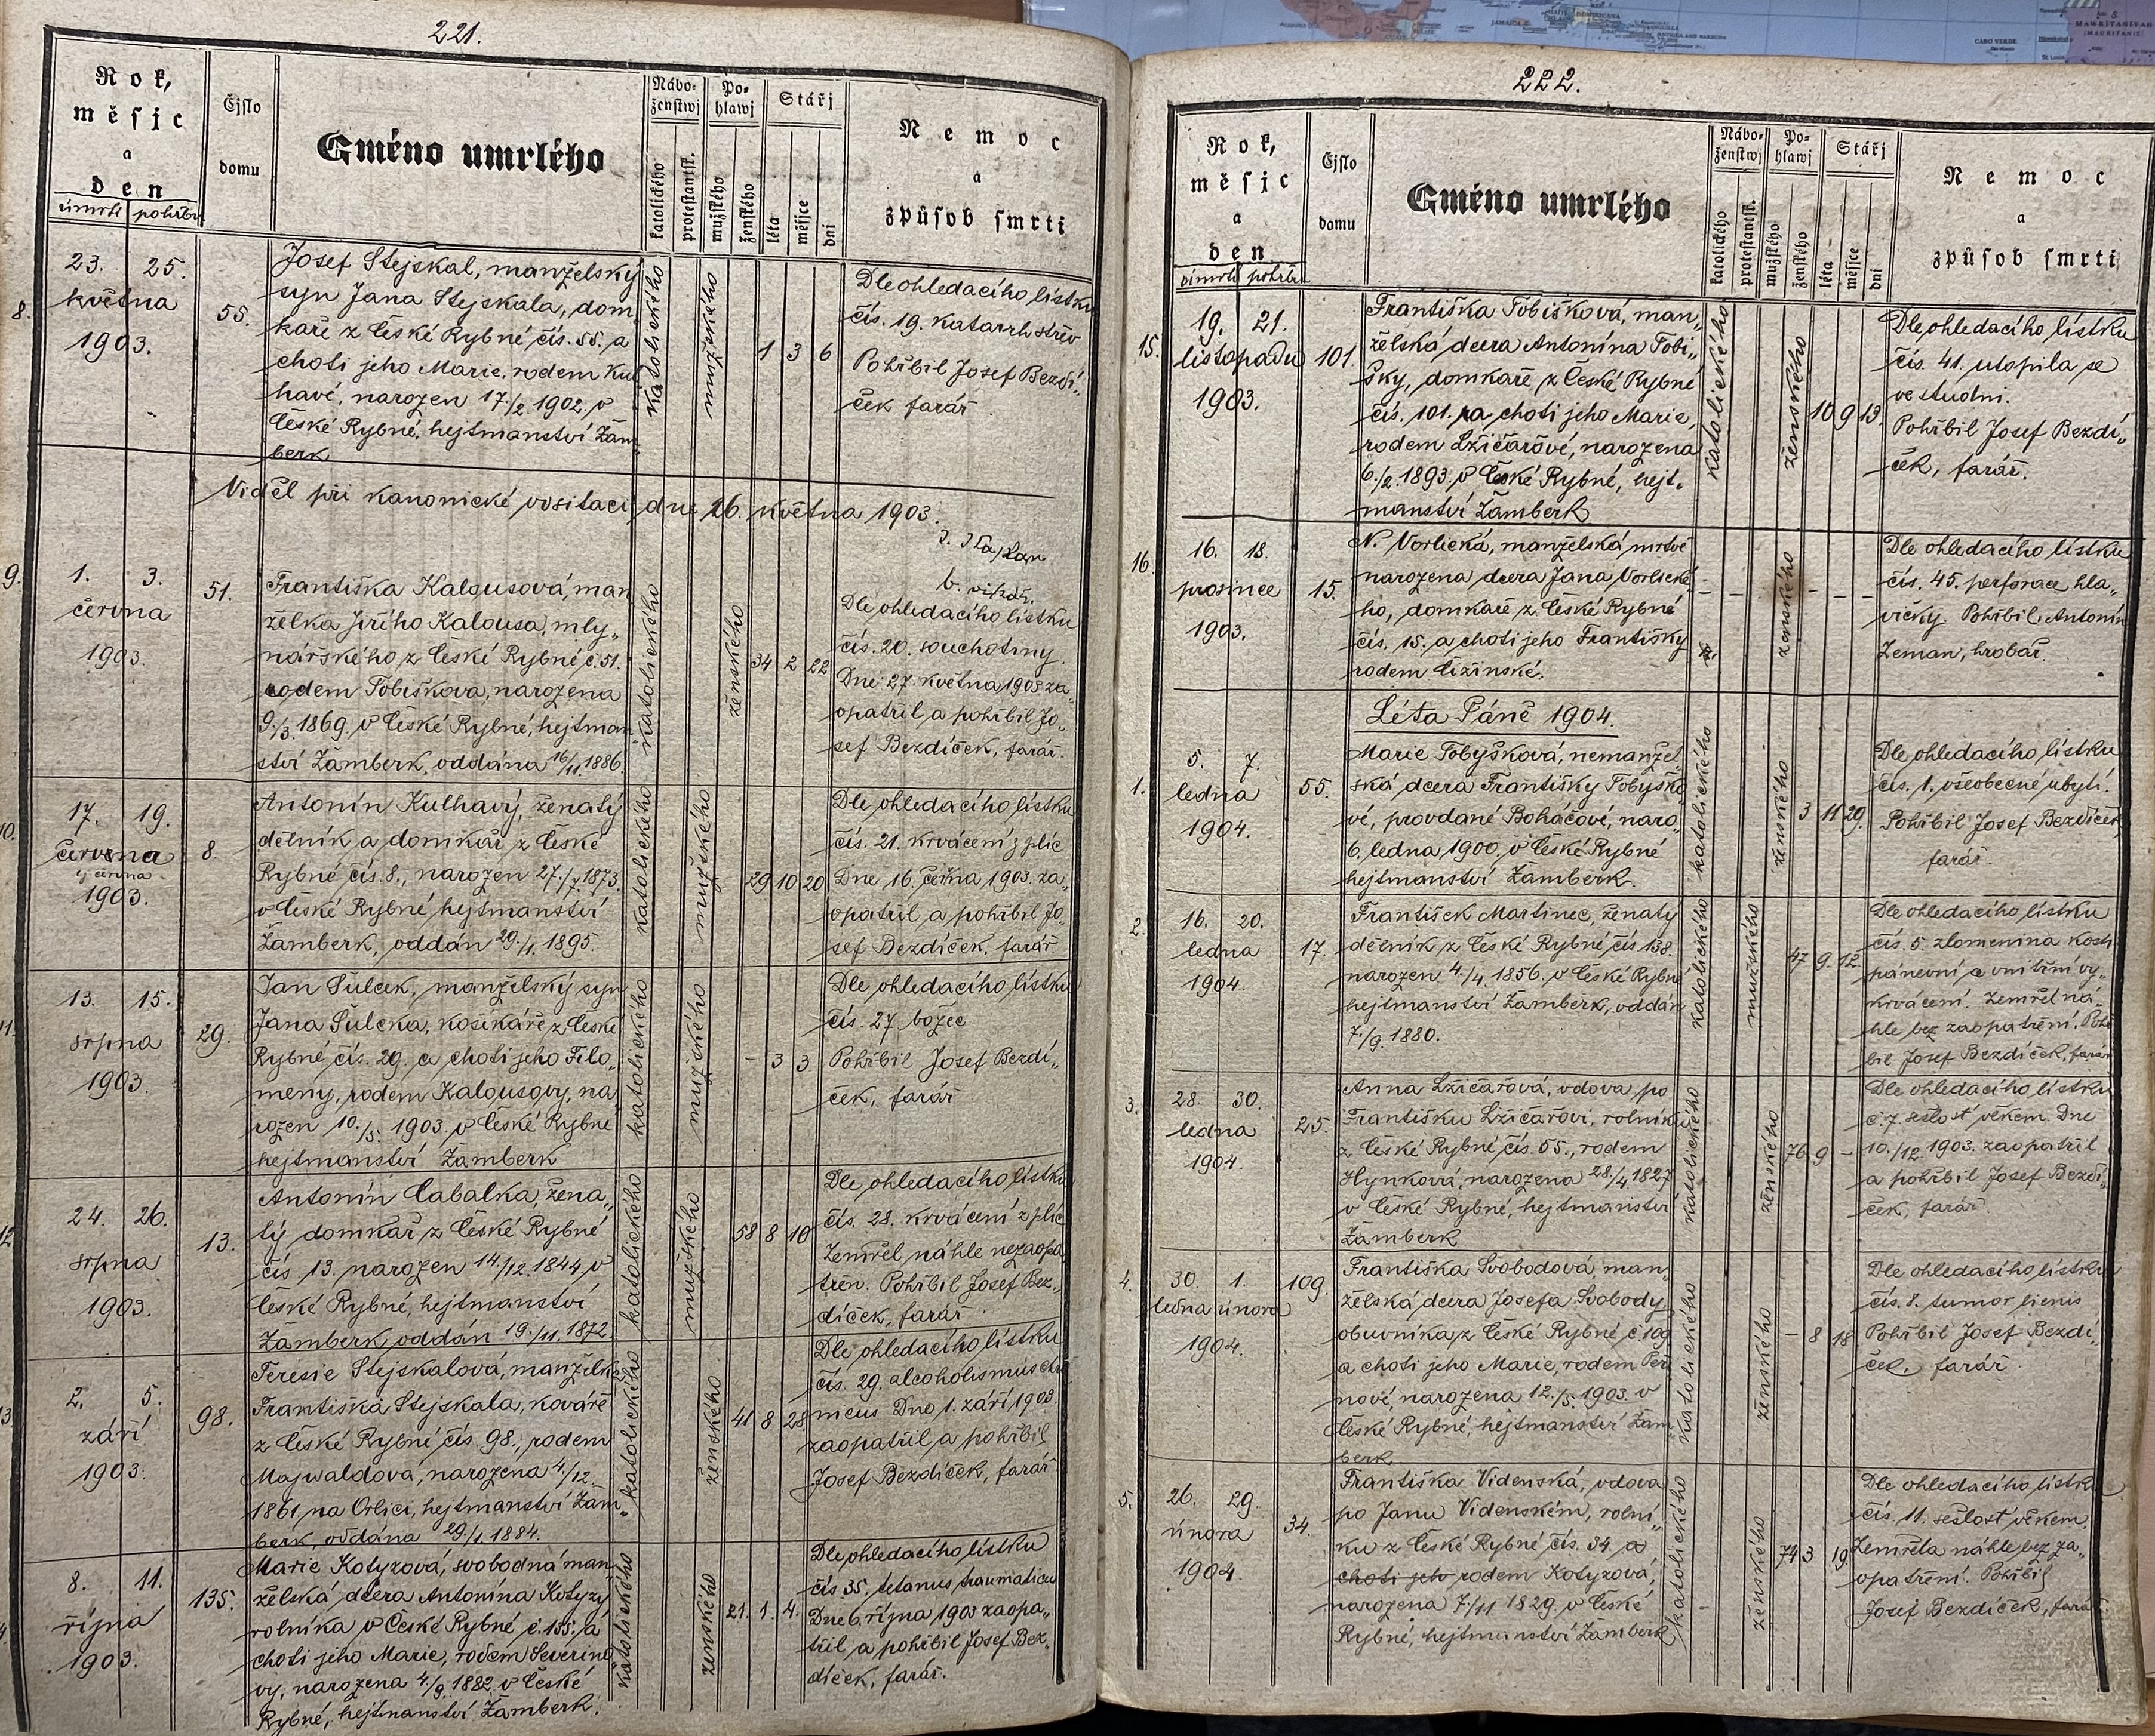 221.
Rok,
měsjc
a
den
úmrtí pohřbu
Čjslo
domu
Gméno umrlého
Nábo-
ženstwj
katolického
protestantsk.
Po-
hlawj
mužského
ženského
Stářj
léta
měsjce
dni
Nemoc
a
způsob smrti
8.
23. 25.
května
1903.
55.
Josef Stejskal, manželský
syn Jana Stejskala, dom-
kaře z České Rybné čís. 55. a
choti jeho Marie, rodem Kul
havé, narozen 17./2. 1902. v
České Rybné, hejtmanství Žam
berk
katolického
mužského
1 3 6
Dle ohledacího lístku
čís. 19. katarrh střev
Pohřbil Josef Bezdí„
ček farář
Viděl při kanonické visitaci dne 26. května 1903.
b. vikář.
9.
1. 3.
června
1903.
51.
Františka Kalousová, man
želka Jiřího Kalousa, mly„
nářského z České Rybné č. 51.
rodem Tobiškova, narozena
9./3. 1869. v České Rybné, hejtman
ství Žamberk, oddána 16/11. 1886.
katolického
ženského
34 2 22
Dle ohledacího lístku
čís. 20. souchotiny.
Dne 27. května 1903 za„
opatřil a pohřbil Jo„
sef Bezdíček, farář.
10.
17. 19.
června
června
1903.
8.
Antonín Kulhavý, ženatý
dělník a domkář z České
Rybné čís. 8., narozen 27./7. 1873.
v České Rybné hejtmanství
Žamberk, oddán 29./1. 1895.
katolického
mužského
29 10 20
Dle ohledacího lístku
čís. 21. krvácení z plic
Dne 16. června 1903. za„
opatřil a pohřbil Jo„
sef Bezdíček, farář.
11.
13. 15.
srpna
1903.
29.
Jan Šulcek, manželský syn
Jana Šulcka, košikáře z České
Rybné čís. 29. a choti jeho Filo„
meny, rodem Kalousovy, na
rozen 10./5. 1903. v České Rybné
hejtmanství Žamberk
katolického
mužského
- 3 3
Dle ohledacího lístku
čís. 27 božec
Pohřbil Josef Bezdí„
ček, farář
12
24. 26.
srpna
1903.
13.
Antonín Cabalka, žena„
tý domkář z České Rybné
čís 13. narozen 14./12. 1844 v
České Rybné, hejtmanství
Žamberk, oddán 19./11. 1872.
katolického
mužského
58 8 10
Dle ohledacího lístku
čís. 28. krvácení z plic
Zemřel náhle nezaopa
třen. Pohřbil Josef Bez„
díček, farář.
13
2. 5.
září
1903.
98.
Teresie Stejskalová, manželka
Františka Stejskala, kováře
z České Rybné čís. 98., rodem
Majwaldova, narozena 4./12.
1861 na Orlici, hejtmanství Žam„
berk, oddána 29./1. 1884.
katolického
ženského
41 8 28
Dle ohledacího lístku
čís. 29. alcoholismus chro
nicus Dno 1. září 1903.
zaopatřil a pohřbil
Josef Bezdíček, farář
8. 11.
října
1903.
135.
Marie Kotyzová, svobodná man„
želská dcera Antonína Kotyzy
rolníka v České Rybné č. 135. a
choti jeho Marie, rodem Severino„
vy, narozena 4./9. 1882. v České
Rybné, hejtmanství Žamberk.
katolického
ženského
21. 1. 4.
Dle ohledacího lístku
čís 35. tetanus traumaticus
Dne 6. října 1903 zaopa„
třil a pohřbil Josef Bez„
díček, farář.
222.
Rok,
měsjc
a
den
úmrtí pohřbu
Čjslo
domu
Gméno umrlého
Nábo-
ženstwj
katolického
protestantsk.
Po-
hlawj
mužského
ženského
Stářj
léta
měsjce
dni
Nemoc
a
způsob smrti
15.
19. 21.
listopadu
1903.
101.
Františka Tobišková, man„
želská dcera Antonína Tobi„
šky, domkáře z České Rybné
čís. 101. a choti jeho Marie,
rodem Lžičařové, narozena
6./2. 1893. v České Rybné, hejt„
manství Žamberk
katolického
ženského
10 9 13.
Dle ohledacího lístku
čís. 41. utopila se
ve studni.
Pohřbil Josef Bezdí„
ček, farář.
16.
16. 18.
prosince
1903.
15.
N. Vorlická, manželská mrtvě
narozena dcera Jana Vorlické„
ho, domkáře z České Rybné
čís. 15. a choti jeho Františky
rodem Cizinské.
ženského
- - -
Dle ohledacího lístku
čís. 45. perforace hla„
vičky Pohřbil Antonín
Zeman, hrobář.
Léta Páně 1904.
1.
5. 7.
ledna
1904.
55.
Marie Tobyšková, nemanžel„
ská dcera Františky Tobyško„
vé, provdané Boháčové, naro„
6. ledna 1900. v České Rybné
hejtmanství Žamberk.
katolického
ženského
3 11 29.
Dle ohledacího lístku
čís. 1. všeobecné ubytí.
Pohřbil Josef Bezdíček
farář.
2.
16. 20.
ledna
1904.
17.
František Martinec, ženatý
dělník z České Rybné čís 138.
narozen 4./4. 1856. v České Rybné
hejtmanství Žamberk, oddán
7./9. 1880.
katolického
mužského
47 9. 12.
Dle ohledacího lístku
čís. 5. zlomenina kosti
pánevní a vnitřní vy„
krvácení. Zemřel ná„
hle bez zaopatření. Pohř
bil Josef Bezdíček, farář
3.
28. 30.
ledna
1904.
25.
Anna Lžičařová, vdova po
Františku Lžičařovi, rolníku
z České Rybné čís. 55., rodem
Hynková, narozena 28/4 1827
v České Rybné, hejtmanství
Žamberk
katolického
ženského
76 9 -
Dle ohledacího lístku
č. 7. sešlosť věkem. Dne
10./12. 1903. zaopatřil
a pohřbil Josef Bezdí„
ček, farář.
4.
30. 1.
ledna února
1904.
109.
Františka Svobodová man„
želská dcera Josefa Svobody
obuvníka z České Rybné č 109
a choti jeho Marie, rodem Per
nové, narozena 12./5. 1903. v
České Rybné, hejtmanství Žam
berk
katolického
ženského
- 8 18
Dle ohledacího lístku
čís. 8. tumor lienis
Pohřbil Josef Bezdí„
ček, farář.
5.
26. 29.
února
1904.
34.
Františka Videnská, vdova
po Janu Videnském, rolní„
ku z České Rybné čís. 34 a
choti jeho rodem Kotyzová,
narozena 7/11 1829. v České
Rybné, hejtmanství Žamberk
katolického
ženského
74 3 19
Dle ohledacího lístku
čís. 11. sešlosť věkem.
Zemřela náhle bez za„
opatření. Pohřbil
Josef Bezdíček, farář.